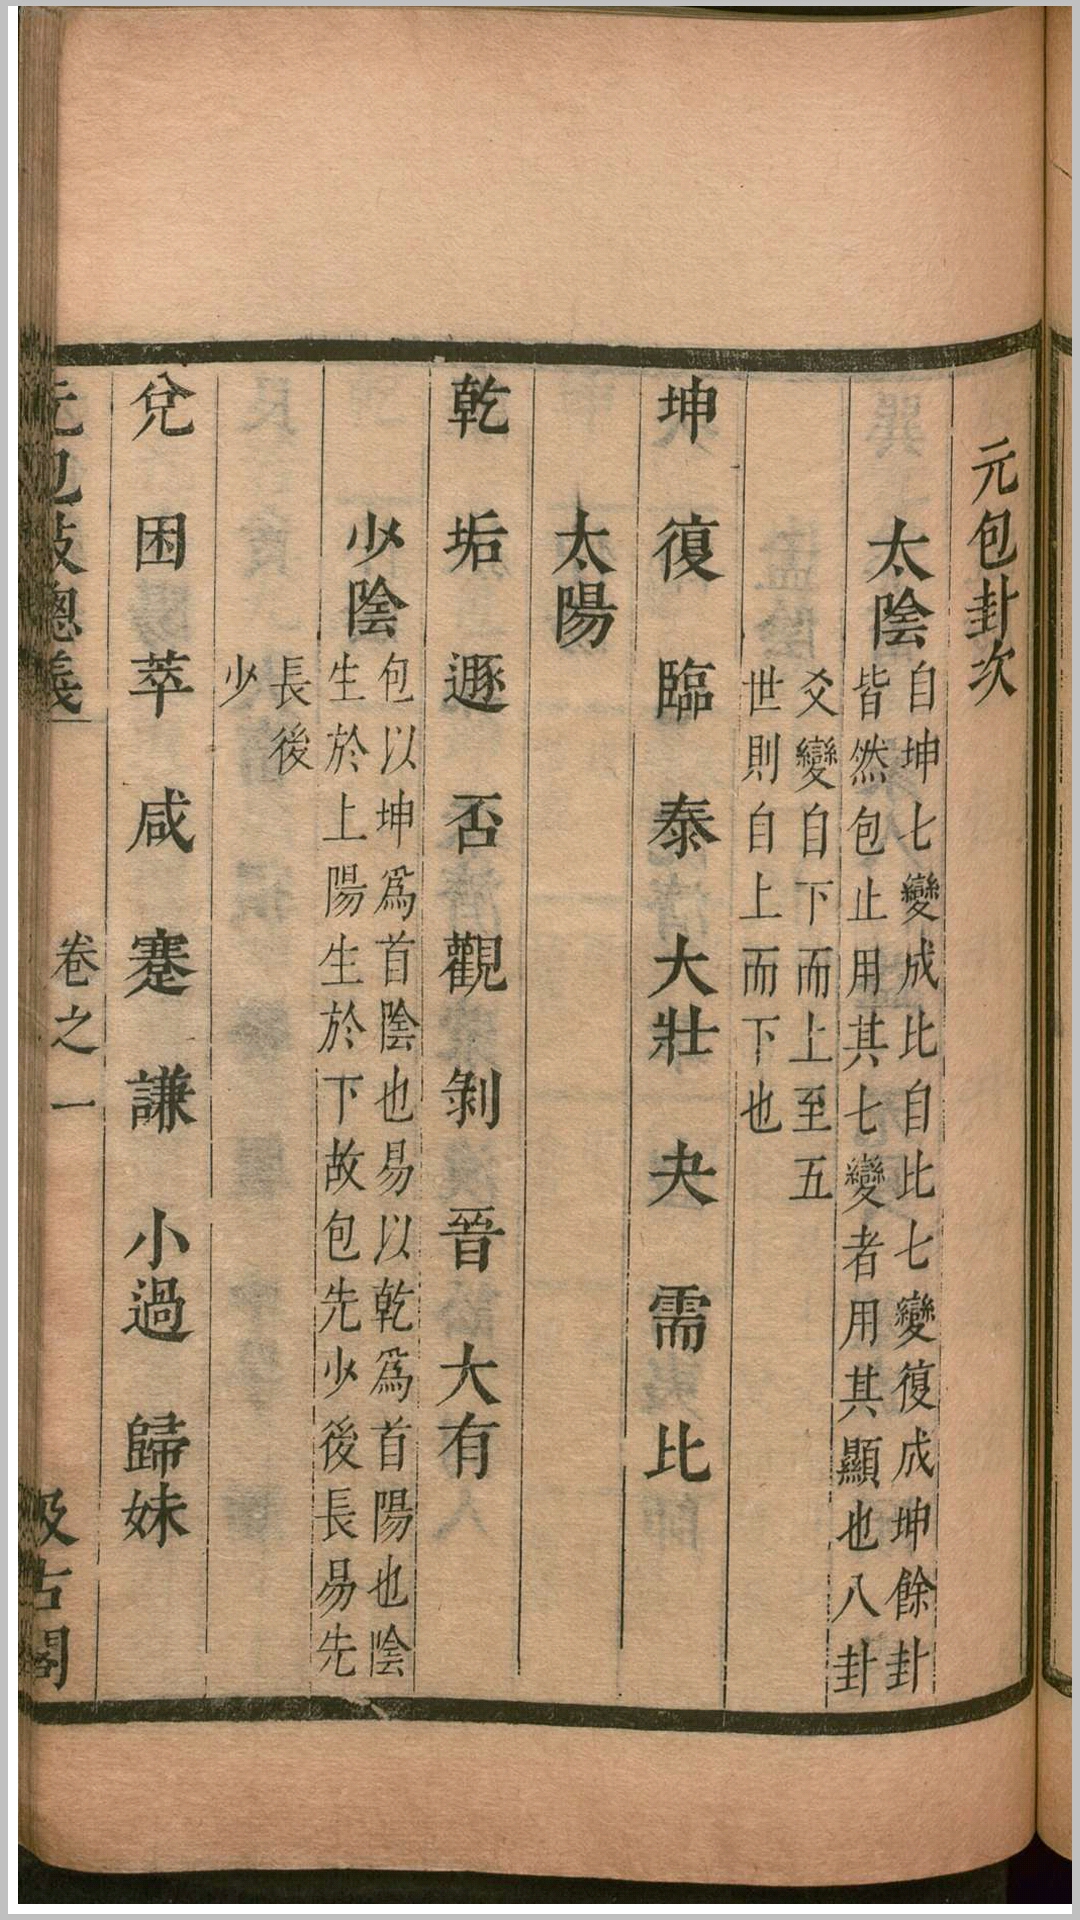 元包卦次
太陰
自坤七變成比自比七變復成坤餘卦
皆然包止用其七變者用其顯也八卦
爻變自下而上至五
世則自上而下也
坤 復 臨 泰 大壯 夬 需 比
太陽
乾 垢 遯 否 觀 剝 晉 大有
少陰
包以坤爲首陰也易以乾爲首陽也陰
生於上陽生於下故包先少後長易先
長後
少
兌 困 萃 咸 蹇 謙 小過 歸妹
元包數總義 卷之一 汲古閣